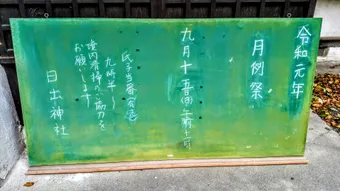 令和元年
月例祭
九月十五日(日)午前十時
氏子当番の皆
九時半〜
境内清掃のご協力を
お願いします
日出神社